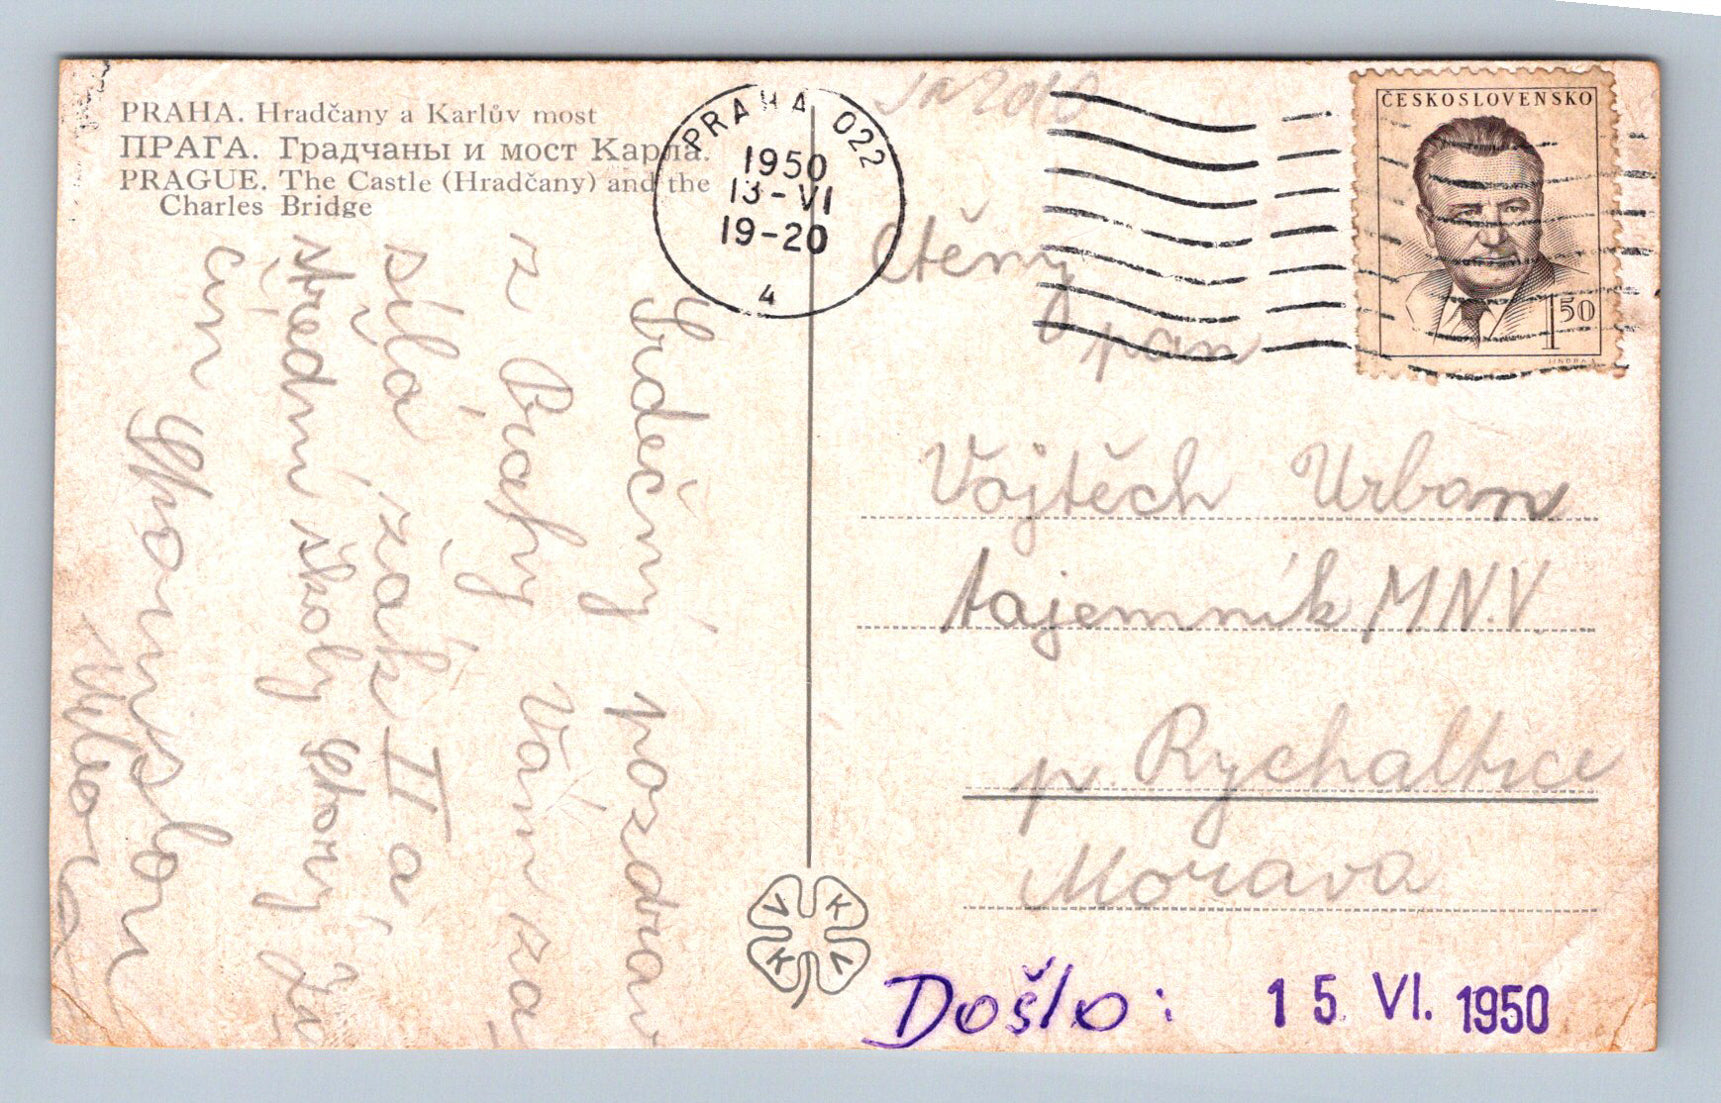 PRAHA. Hradčany a Karlův most
ПРАГА. Градчаны и мост Карла.
PRAGUE. The Castle (Hradčany) and the
Charles Bridge
PRAHA 022
1950
13-VI
19-20
4
ČESKOSLOVENSKO
1 50
Srdečný pozdrav
z Prahy Vám za-
sílá žák II a,
střední školy
Ctěný
pan
Vojtěch Urban
tajemník MNV.
p. Rychaltice
Morava
V K V K
Došlo: 15. VI. 1950